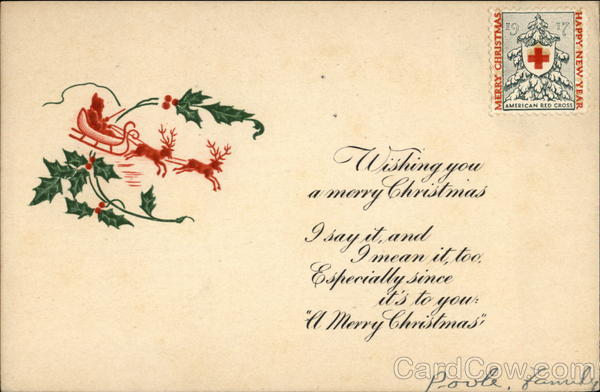 MERRY CHRISTMAS
1917
HAPPY NEW YEAR
AMERICAN RED CROSS
Wishing you
a merry Christmas
I say it, and
I mean it, too,
Especially since
it's to you:
"A Merry Christmas"
Poole, family
CardCow.com